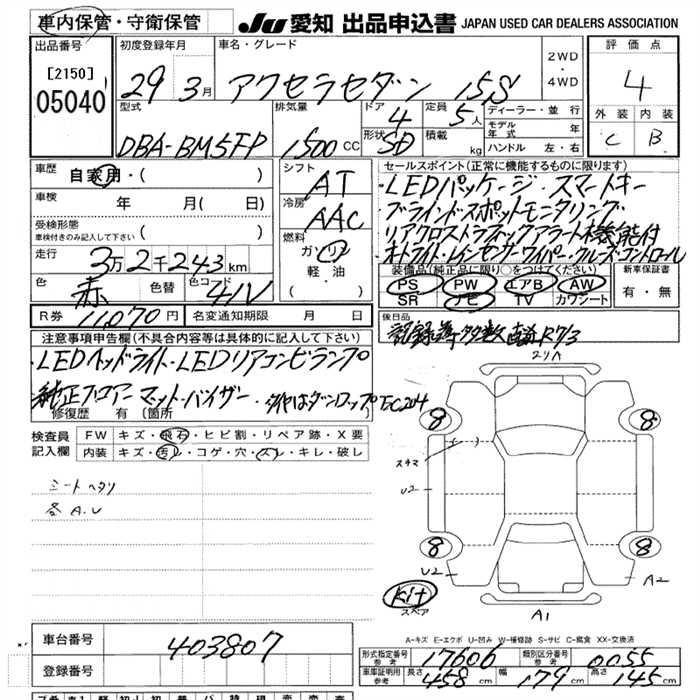 車内保管・守衛保管
JU 愛知 出品申込書 JAPAN USED CAR DEALERS ASSOCIATION
出品番号
[2150]
05040
初度登録年月
29年 3月
車名・グレード
アクセラセダン 15S
2WD
・
4WD
評価点
4
外装 内装
C B
型式
DBA-BM5FP
排気量
1500 CC
ドア
4
形状
SD
定員
5人
積載
kg
ディーラー・並行
モデル年式 年
ハンドル 左・右
車歴
自家用・( )
車検
年 月( 日)
受検形態
車検付きのみ記入して下さい
( )
走行
3万2千243km
色
赤
色替
色コード
41V
シフト
AT
冷房
AAC
燃料
ガソリン
軽・油
( )
セールスポイント(正常に機能するものに限ります)
・LEDパッケージ・スマートキー
ブラインドスポットモニタリング・
リアクロストラフィックアラート機能付
オートライト・レインセンサーワイパー・クルーズコントロール
装備品(純正品に限り○をつけてください)
PS PW エアB AW
SR ナビ TV カワシート
新車保証書
有・無
R券
11,070円
名変通知期限 月 日
後日品
記録簿 多数 直前R7/3
注意事項申告欄(不具合内容等は具体的に記入して下さい)
・LEDヘッドライト・LEDリアコンビランプ
純正フロアーマット・バイザー・タイヤはダンロップEC204
修復歴 有 (箇所
検査員
記入欄
FW キズ・飛石・ヒビ割・リペア跡・X要
内装 キズ・汚レ・コゲ・穴・スレ・キレ・破レ
シートヘタリ
各A.U
スリA
8 8
スキマ
U2
8 8
U2
A2
Kit
スペア
A1
A-キズ E-エクボ U-凹み W-補修跡 S-サビ C-腐食 XX-交換済
車台番号
403807
登録番号
形式指定番号
参考
17606
類別区分番号
参考
0055
車庫証明用
参考
長さ
458cm
幅
179cm
高さ
145cm